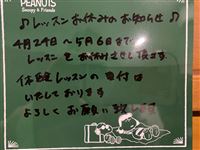 PEANUTS
Snoopy & Friends
♪レッスンお休みのお知らせ♪
4月29日〜5月6日まで
レッスンをお休みさせて頂きます。
体験レッスンの受付は
いたしております
よろしくお願い致します